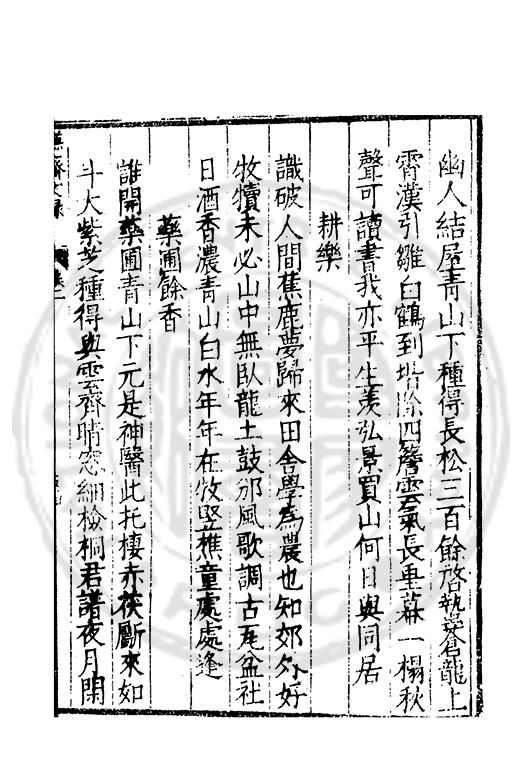 幽人結屋青山下種得長松三百餘啓蟄蒼龍上
霄漢引雛白鶴到堦除四簷雲氣長垂幕一榻秋
聲可讀書我亦平生羨弘景買山何日與同居
耕樂
識破人間蕉鹿夢歸來田舍學為農也知郊外好
牧犢未必山中無臥龍土鼓邠風歌調古瓦盆社
日酒香濃青山白水年年在牧豎樵童處處逢
藥圃餘香
誰開藥圃青山下元是神醫此托棲赤茯斷來如
斗大紫芝種得與雲齊晴窓細檢桐君譜夜月閑